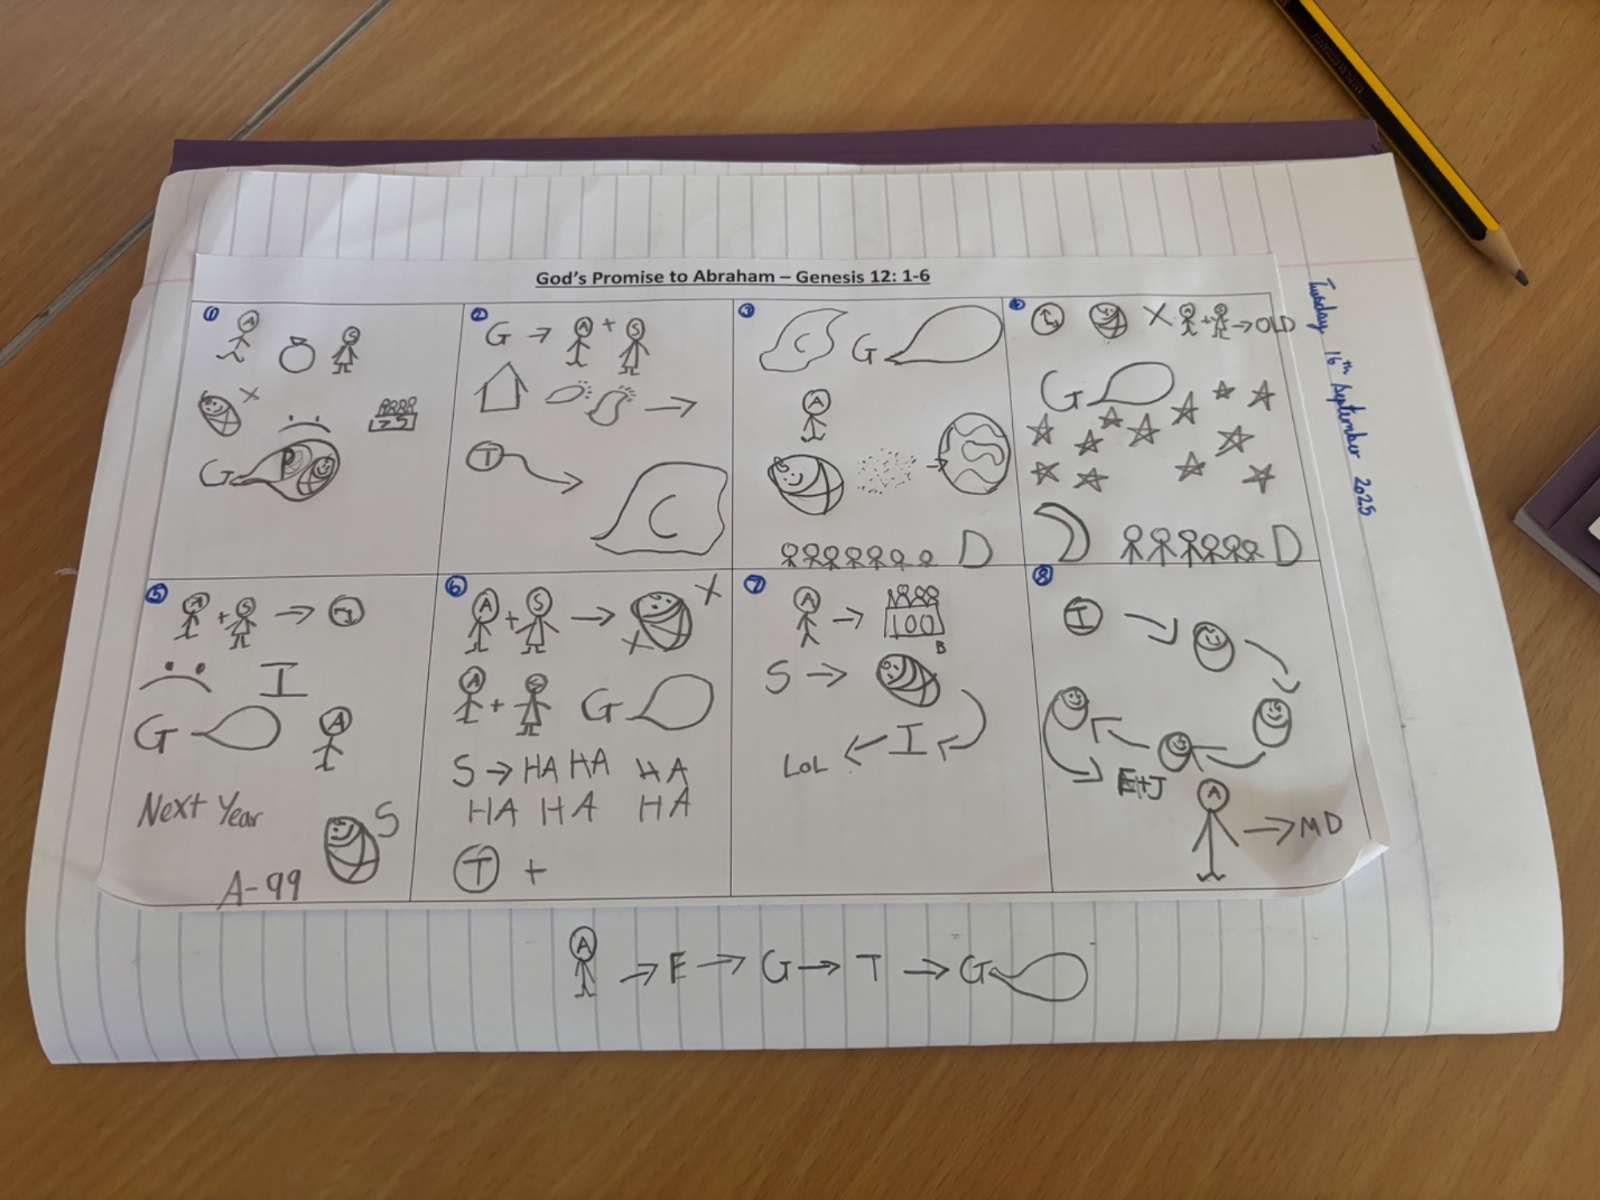 God's Promise to Abraham – Genesis 12: 1-6
Tuesday 16th September 2025
1
A S
X
75
G P
2
G → A + S
→
T
C
3
C G
A
→
D
4
X A + S → OLD
G
D
5
A + S →
I
G A
Next Year
S
A-99
6
A + S → X
X
A + S G
S → HA HA HA
HA HA HA
T +
7
A → 100
B
S →
LOL ← I
8
I
E+J
A → MD
A → E → G → T → G